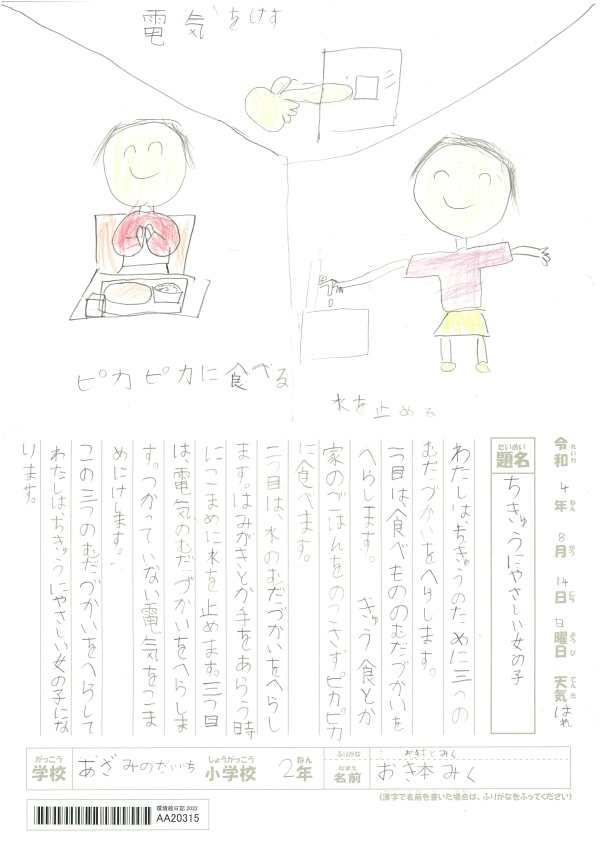 電気をけす
ピカピカに食べる
水を止める
令和4年8月14日日曜日 天気はれ
れいわ ねん がつ にち ようび てんき
だいめい
題名 ちきゅうにやさしい女の子
わたしは、ちきゅうのために三つの
むだづかいをへらします。
一つ目は食べもののむだづかいを
へらします。 きゅう食とか
家のごはんをのこさずピカピカ
に食べます。
二つ目は、水のむだづかいをへらし
ます。はみがきとか手をあらう時
にこまめに水を止めます。三つ目
は、電気のむだづかいをへらしま
す。つかっていない電気をこま
めにけします。
この三つのむだづかいをへらして
わたしは、ちきゅうにやさしい女の子にな
ります。
がっこう しょうがっこう ねん ふりがな おきもとみく
学校 あざみのだいいち 小学校 2年 なまえ 名前 おき本みく
(漢字で名前を書いた場合は、ふりがなをふってください)
環境絵日記2022
AA20315